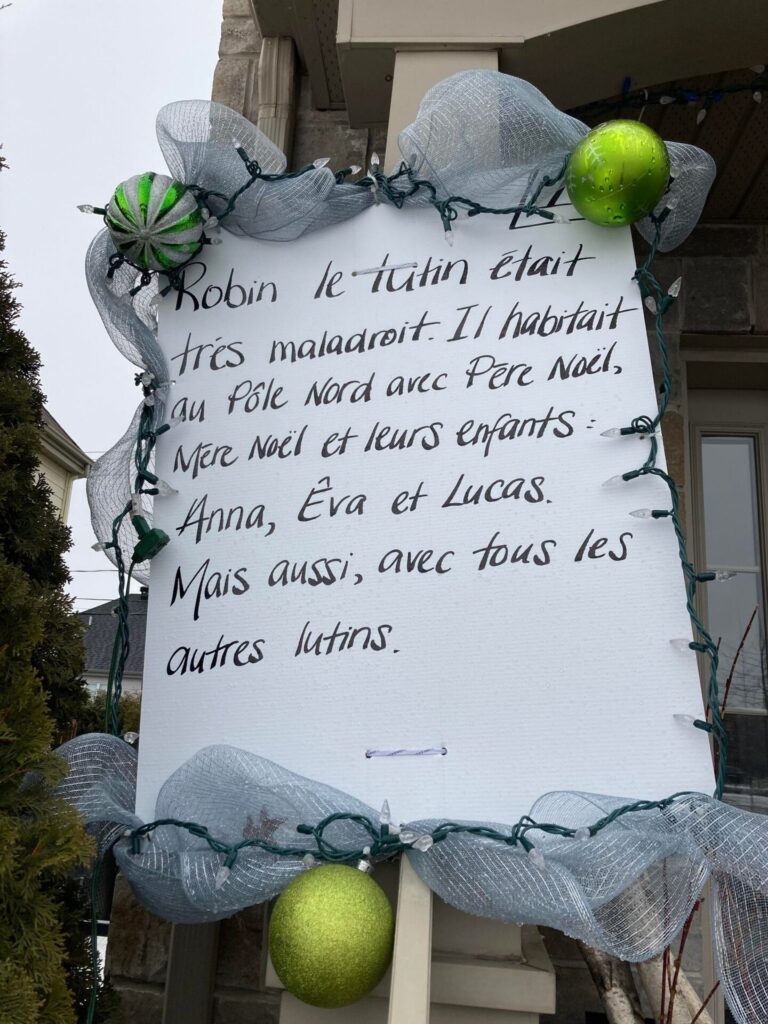 Robin le lutin était
très maladroit. Il habitait
au Pôle Nord avec Père Noël,
Mère Noël et leurs enfants :
Anna, Êva et Lucas.
Mais aussi, avec tous les
autres lutins.